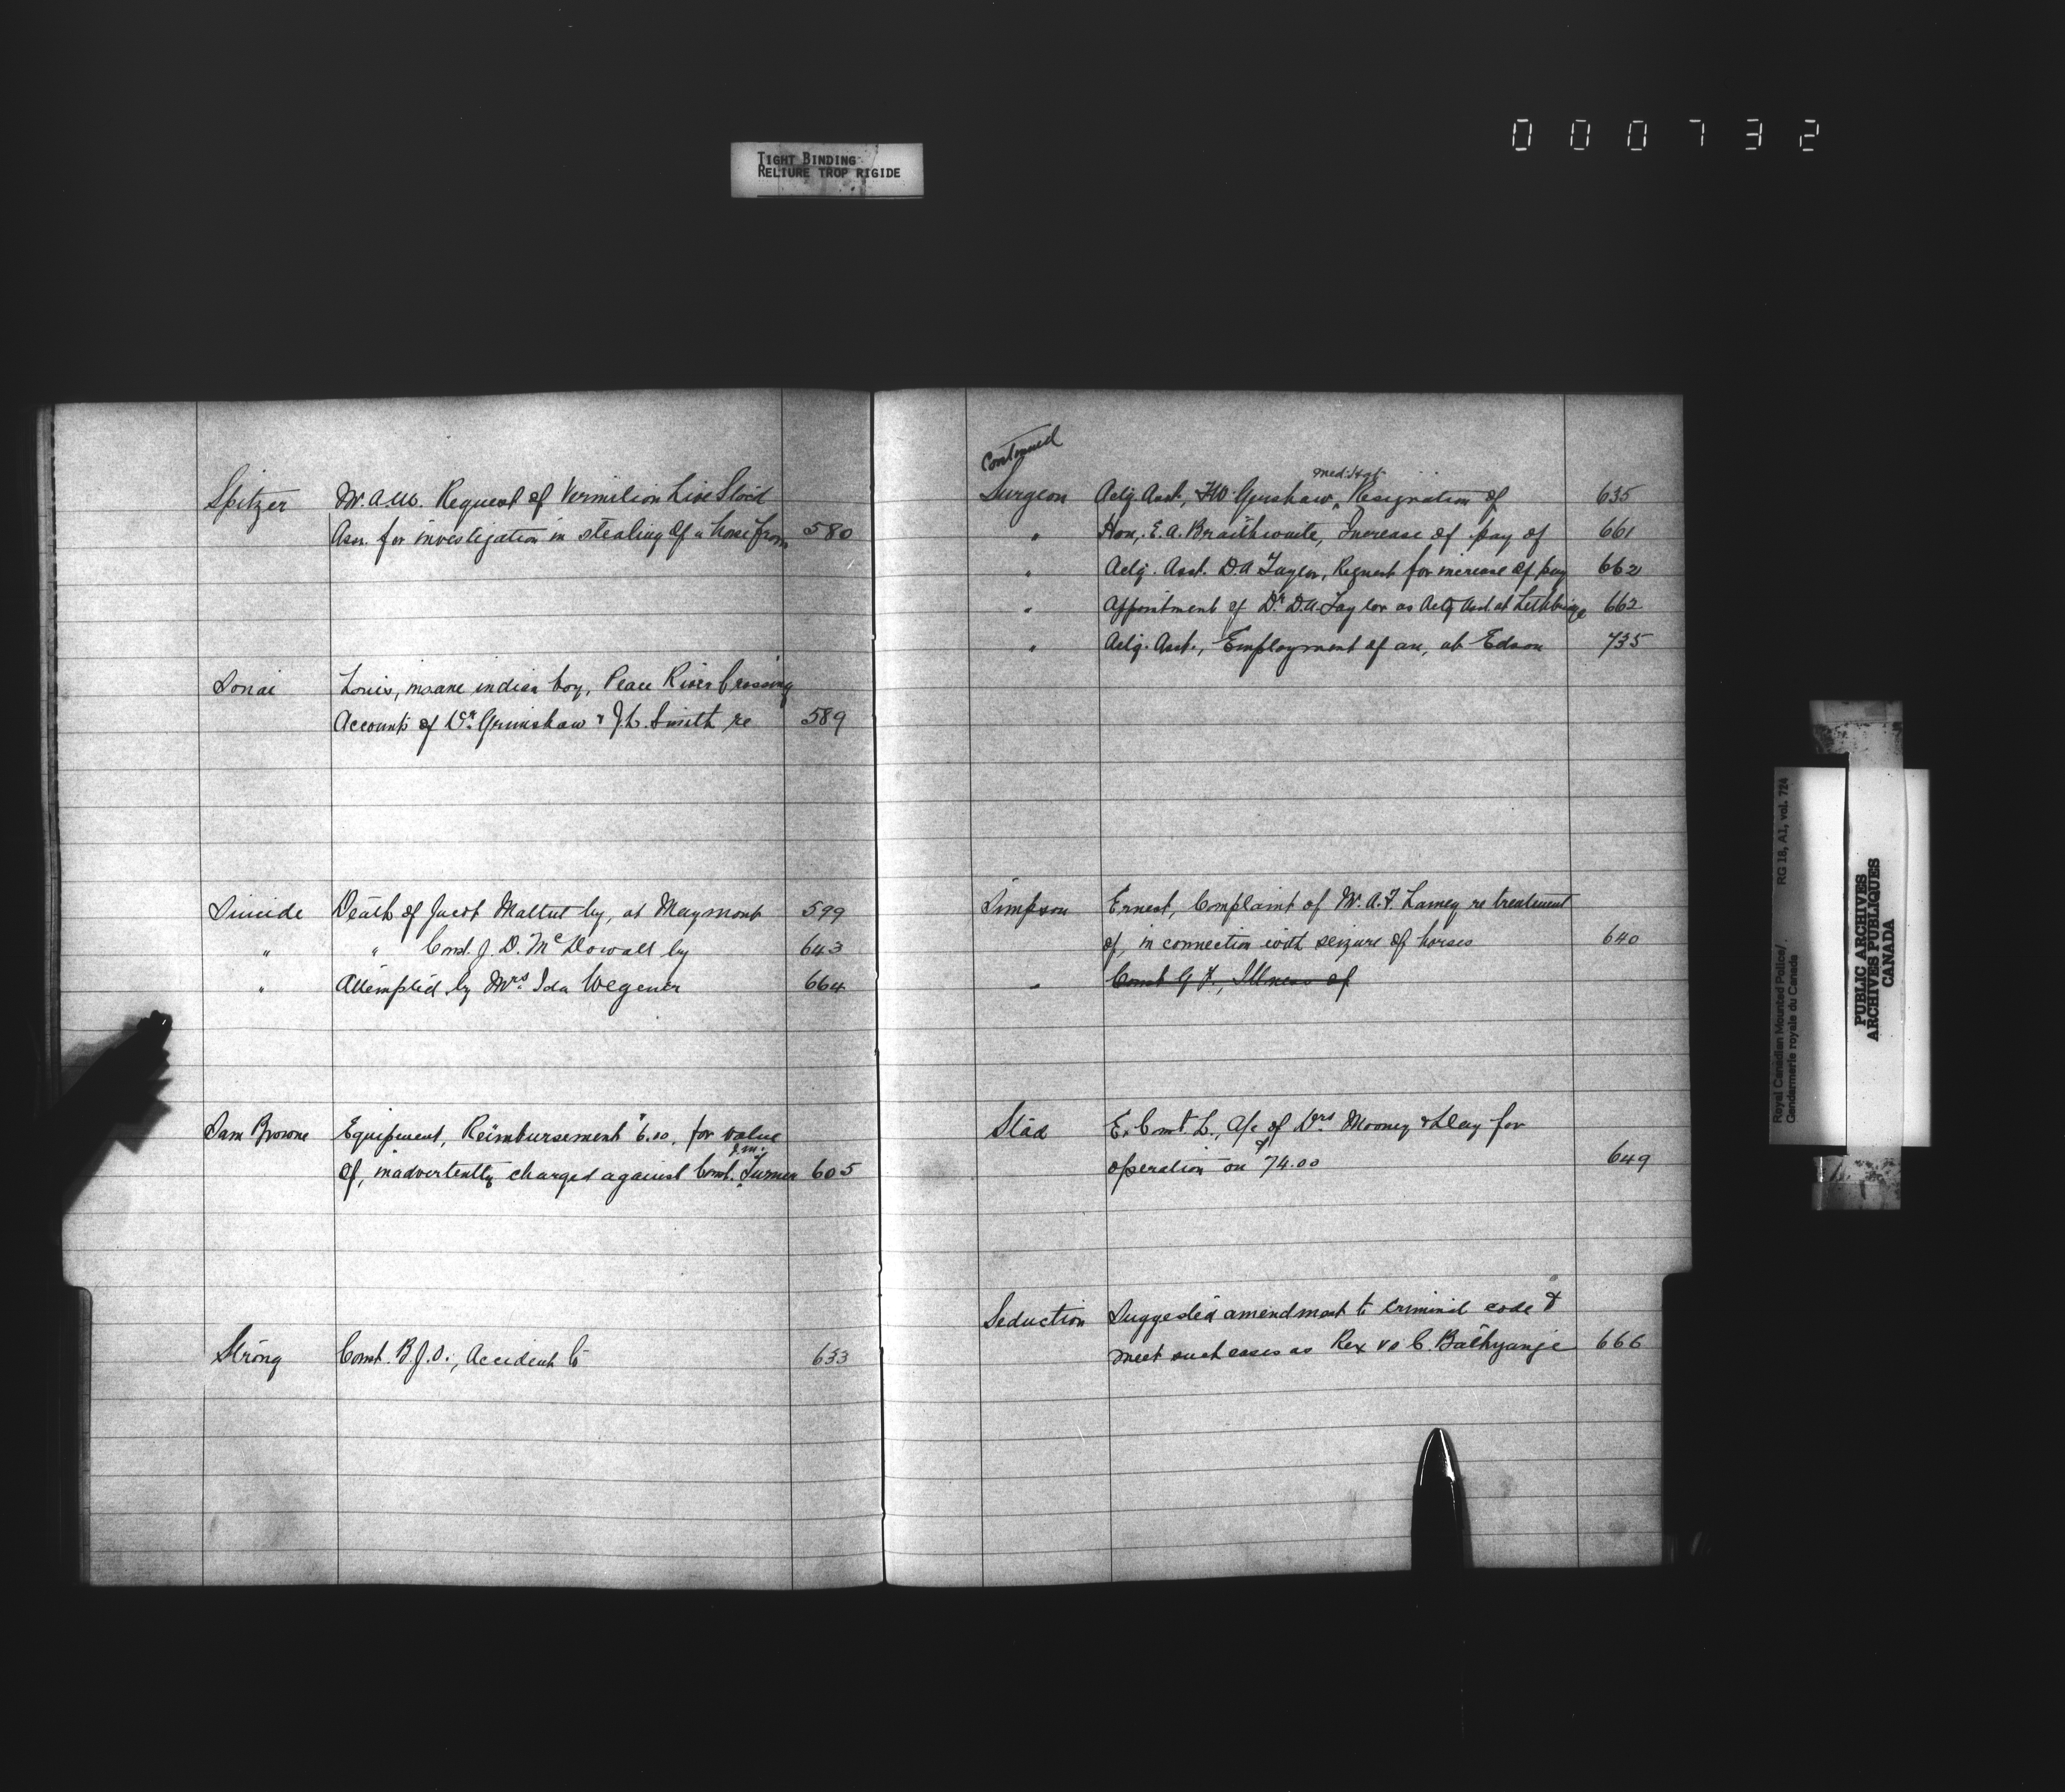 000732
TIGHT BINDING
RELIURE TROP RIGIDE
Spitzer W. A. W. Request of Vermilion Live Stock
Assn. for investigation in stealing of a horse from 580
Louis, insane indian boy, Peace River Crossing
Accounts of Dr. Grimshaw & J. L. Smith re 589
Suicide Death of Jacob by, at Maymont 599
" " Const. J. D. McDowall by 643
" Attempted by Mrs. Ida Wegener 664
Sam Browne Equipment, Reimbursement $6.00, for value
of, inadvertently charged against Const. J.M. Turner 605
Strong Const. B. J. O., Accident to 633
Continued
Surgeon Actg. Asst., Grinshaw, Med: Hat Resignation of 635
" Hon., E. A. Braithwaite, Increase of pay of 661
" Actg. Asst. D. A. Taylor, Request for increase of pay 662
" Appointment of Dr. D. A. Taylor as Actg Asst. at Lethbridge 662
" Actg. Asst., Employment of an, at Edson 735
Simpson Ernest, Complaint of W. A. F. Lamey re treatment
of, in connection with seizure of horses 640
" Const G. F., Illness of
E. Const. L., A/c of Drs Mooney & for
operation on $74.00 649
Seduction Suggested amendment to criminal code to
meet such cases as Rex vs C. 666
Royal Canadian Mounted Police/
Gendarmerie royale du Canada
RG 18, A1, vol. 724
PUBLIC ARCHIVES
ARCHIVES PUBLIQUES
CANADA